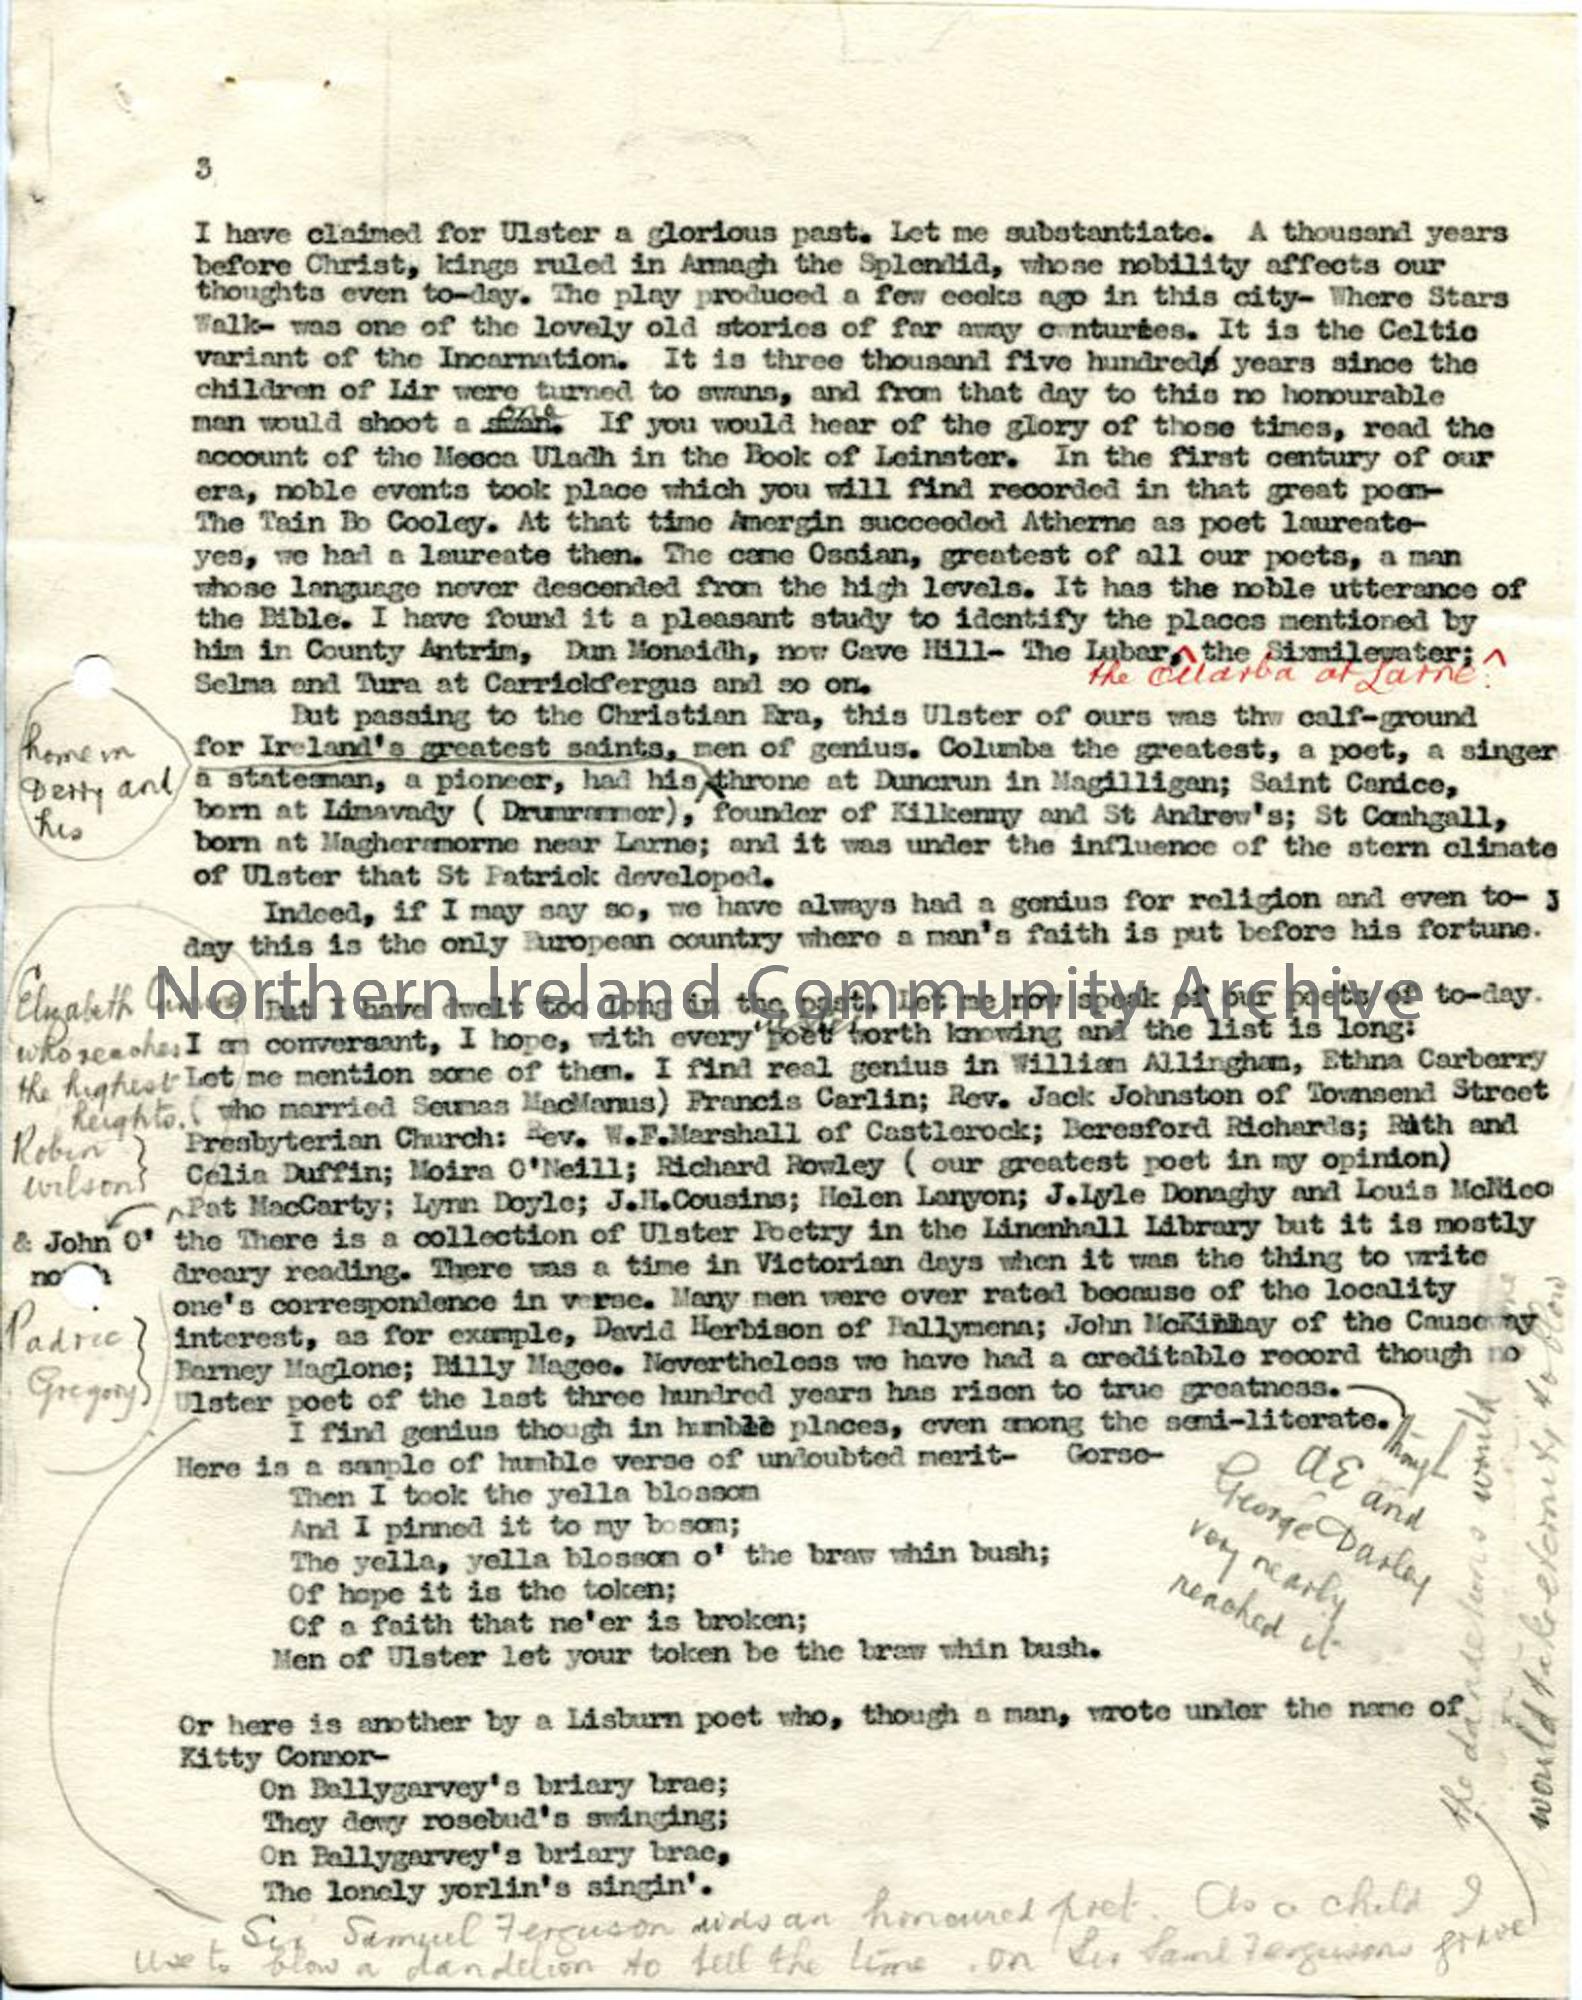 3
I have claimed for Ulster a glorious past. Let me substantiate. A thousand years
before Christ, kings ruled in Armagh the Splendid, whose nobility affects our
thoughts even to-day. The play produced a few eeeks ago in this city- Where Stars
Walk- was one of the lovely old stories of far away centuries. It is the Celtic
variant of the Incarnation. It is three thousand five hundreds years since the
children of Lir were turned to swans, and from that day to this no honourable
one
man would shoot a swan. If you would hear of the glory of those times, read the
account of the Mesca Uladh in the Book of Leinster. In the first century of our
era, noble events took place which you will find recorded in that great poem-
The Tain Bo Cooley. At that time Amergin succeeded Atherne as poet laureate-
yes, we had a laureate then. The came Ossian, greatest of all our poets, a man
whose language never descended from the high levels. It has the noble utterance of
the Bible. I have found it a pleasant study to identify the places mentioned by
him in County Antrim, Dun Monaidh, now Cave Hill- The Lubar, the Sixmilewater;
the Ollarba at Larne.
Selma and Tura at Carrickfergus and so on.
But passing to the Christian Era, this Ulster of ours was thw calf-ground
for Ireland's greatest saints, men of genius. Columba the greatest, a poet, a singer
home in
Derry and
his
a statesman, a pioneer, had his throne at Duncrun in Magilligan; Saint Canice,
born at Limavady ( Drumrammer), founder of Kilkenny and St Andrew's; St Comhgall,
born at Magheramorne near Larne; and it was under the influence of the stern climate
of Ulster that St Patrick developed.
Indeed, if I may say so, we have always had a genius for religion and even to-
day this is the only European country where a man's faith is put before his fortune.
Northern Ireland Community Archive
But I have dwelt too long in the past. Let me now speak of our poets of to-day.
I am conversant, I hope, with every poet worth knowing and the list is long:
Let me mention some of them. I find real genius in William Allingham, Ethna Carberry
( who married Seumas MacManus) Francis Carlin; Rev. Jack Johnston of Townsend Street
Presbyterian Church: Rev. W.F.Marshall of Castlerock; Beresford Richards; Ruth and
Celia Duffin; Moira O'Neill; Richard Rowley ( our greatest poet in my opinion)
Pat MacCarty; Lynn Doyle; J.H.Cousins; Helen Lanyon; J.Lyle Donaghy and Louis McNiec
Elizabeth
who reaches
the highest
heights.
Robin
Wilson
& John O'
Padric
Gregory
the There is a collection of Ulster Poetry in the Linenhall Library but it is mostly
dreary reading. There was a time in Victorian days when it was the thing to write
one's correspondence in verse. Many men were over rated because of the locality
interest, as for example, David Herbison of Ballymena; John McKinlay of the Causeway
Barney Maglone; Billy Magee. Nevertheless we have had a creditable record though no
Ulster poet of the last three hundred years has risen to true greatness.
though
AE and
George Darley
very nearly
reached it
I find genius though in humble places, even among the semi-literate.
Here is a sample of humble verse of undoubted merit- Gorse-
Then I took the yella blossom
And I pinned it to my bosom;
The yella, yella blossom o' the braw whin bush;
Of hope it is the token;
Of a faith that ne'er is broken;
Men of Ulster let your token be the braw whin bush.
Or here is another by a Lisburn poet who, though a man, wrote under the name of
Kitty Connor-
On Ballygarvey's briary brae;
They dewy rosebud's swinging;
On Ballygarvey's briary brae,
The lonely yorlin's singin'.
Sir Samuel Ferguson was an honoured poet. As a child I
use to blow a dandelion to tell the time. on Sir Saml Fergusons grave
the dandelions would
would take eternity to blow